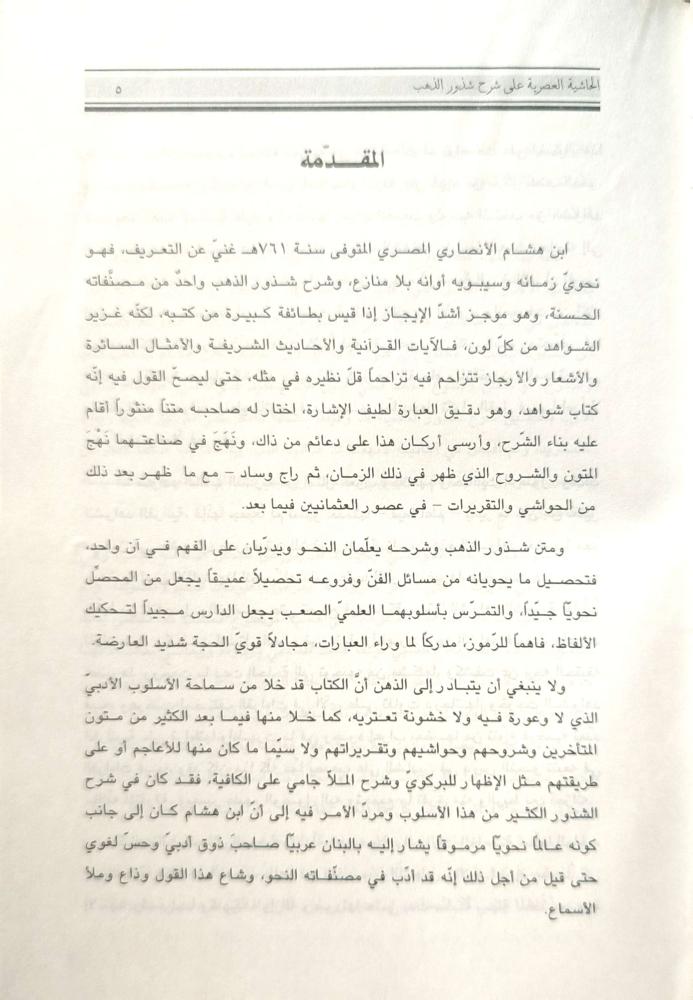 الحاشية العصرية على شرح شذور الذهب
٥
المقـــدّمة
ابن هشام الأنصاري المصري المتوفى سنة ٧٦١هـ غنيّ عن التعريف، فهو
نحويّ زمانه وسيبويه أوانه بلا منازع، وشرح شذور الذهب واحدٌ من مصنَّفاته
الحسنة، وهو موجز أشدّ الإيجاز إذا قيس بطائفة كبيرة من كتبه، لكنّه غزير
الشواهد من كلّ لون، فالآيات القرآنية والأحاديث الشريفة والأمثال السائرة
والأشعار والأرجاز تتزاحم فيه تزاحماً قلّ نظيره في مثله، حتى ليصحّ القول فيه إنّه
كتاب شواهد، وهو دقيق العبارة لطيف الإشارة، اختار له صاحبه متناً منثوراً أقام
عليه بناء الشّرح، وأرسى أركان هذا على دعائم من ذاك، ونَهَجَ في صناعتهما نَهْجَ
المتون والشروح الذي ظهر في ذلك الزمان، ثم راج وساد – مع ما ظهر بعد ذلك
من الحواشي والتقريرات – في عصور العثمانيين فيما بعد.
ومتن شذور الذهب وشرحه يعلّمان النحو ويدرّبان على الفهم في آن واحد،
فتحصيل ما يحويانه من مسائل الفنّ وفروعه تحصيلاً عميقاً يجعل من المحصِّل
نحويّاً جيّداً، والتمرّس بأسلوبهما العلميّ الصعب يجعل الدارس مجيداً لتحكيك
الألفاظ، فاهماً للرّموز، مدركاً لما وراء العبارات، مجادلاً قويّ الحجة شديد العارضة.
ولا ينبغي أن يتبادر إلى الذهن أنَّ الكتاب قد خلا من سماحة الأسلوب الأدبيّ
الذي لا وعورة فيه ولا خشونة تعتريه، كما خلا منها فيما بعد الكثير من متون
المتأخرين وشروحهم وحواشيهم وتقريراتهم ولا سيّما ما كان منها للأعاجم أو على
طريقتهم مثل الإظهار للبركويّ وشرح الملاّ جامي على الكافية، فقد كان في شرح
الشذور الكثير من هذا الأسلوب ومردّ الأمر فيه إلى أنّ ابن هشام كان إلى جانب
كونه عالماً نحويّاً مرموقاً يشار إليه بالبنان عربيّاً صاحبَ ذوق أدبيّ وحسّ لغوي
حتى قيل من أجل ذلك إنّه قد أدّب في مصنّفاته النحو، وشاع هذا القول وذاع وملأ
الأسماع.